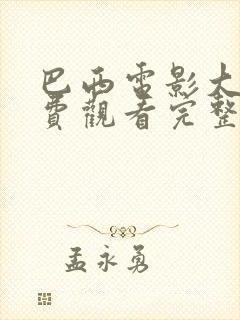 巴西電影大
費觀看完整
孟永勇